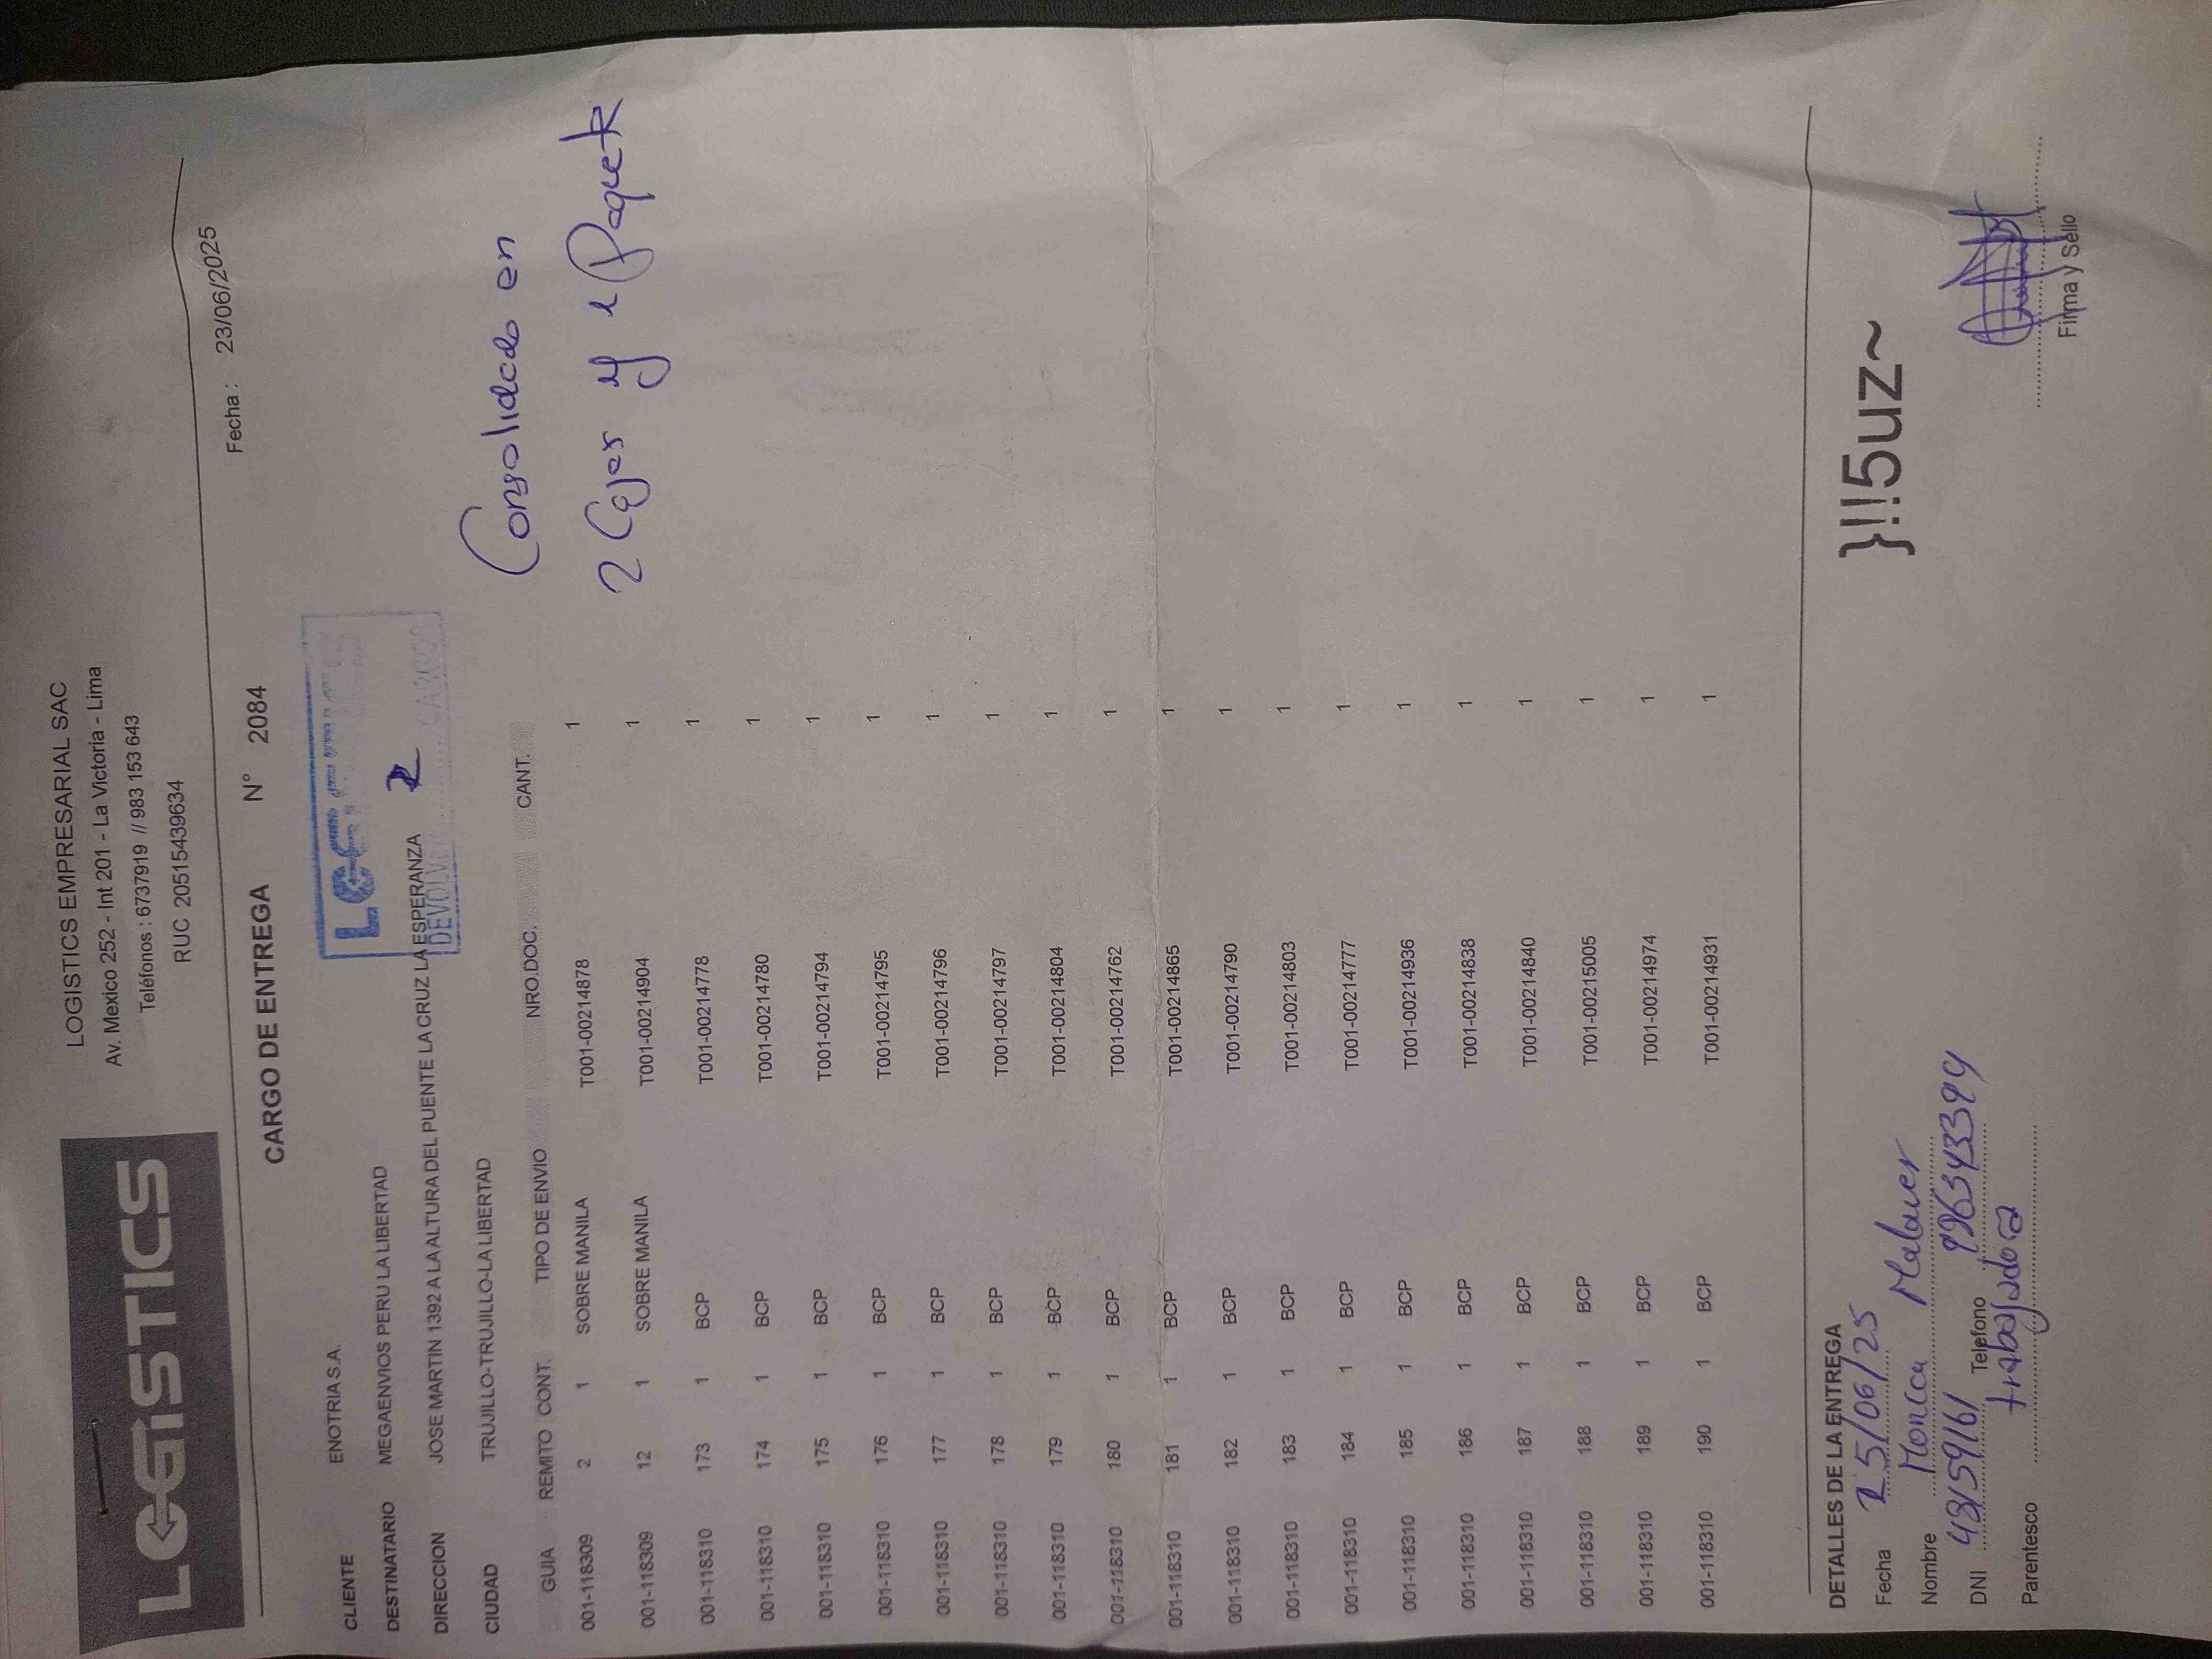 LOGISTICS
LOGISTICS EMPRESARIAL SAC
Av. Mexico 252 - Int 201 - La Victoria - Lima
Teléfonos : 6737919 // 983 153 643
RUC 20515439634
Fecha : 23/06/2025
CARGO DE ENTREGA N° 2084
CLIENTE ENOTRIA S.A.
DESTINATARIO MEGAENVIOS PERU LA LIBERTAD
DIRECCION JOSE MARTIN 1392 A LA ALTURA DEL PUENTE LA CRUZ LA ESPERANZA
CIUDAD TRUJILLO-TRUJILLO-LA LIBERTAD
CARGOS
Consolidado en
2 Cajas y 1 Paquete
GUIA REMITO CONT. TIPO DE ENVIO NRO.DOC. CANT.
001-118309 2 1 SOBRE MANILA T001-00214878 1
001-118309 12 1 SOBRE MANILA T001-00214904 1
001-118310 173 1 BCP T001-00214778 1
001-118310 174 1 BCP T001-00214780 1
001-118310 175 1 BCP T001-00214794 1
001-118310 176 1 BCP T001-00214795 1
001-118310 177 1 BCP T001-00214796 1
001-118310 178 1 BCP T001-00214797 1
001-118310 179 1 BCP T001-00214804 1
001-118310 180 1 BCP T001-00214762 1
001-118310 181 1 BCP T001-00214865 1
001-118310 182 1 BCP T001-00214790 1
001-118310 183 1 BCP T001-00214803 1
001-118310 184 1 BCP T001-00214777 1
001-118310 185 1 BCP T001-00214936 1
001-118310 186 1 BCP T001-00214838 1
001-118310 187 1 BCP T001-00214840 1
001-118310 188 1 BCP T001-00215005 1
001-118310 189 1 BCP T001-00214974 1
001-118310 190 1 BCP T001-00214931 1
DETALLES DE LA ENTREGA
Fecha 25/06/25
}!!5uz~
Nombre
DNI 48159161 Telefono 996343394
Parentesco trabajadora
Firma y Sello